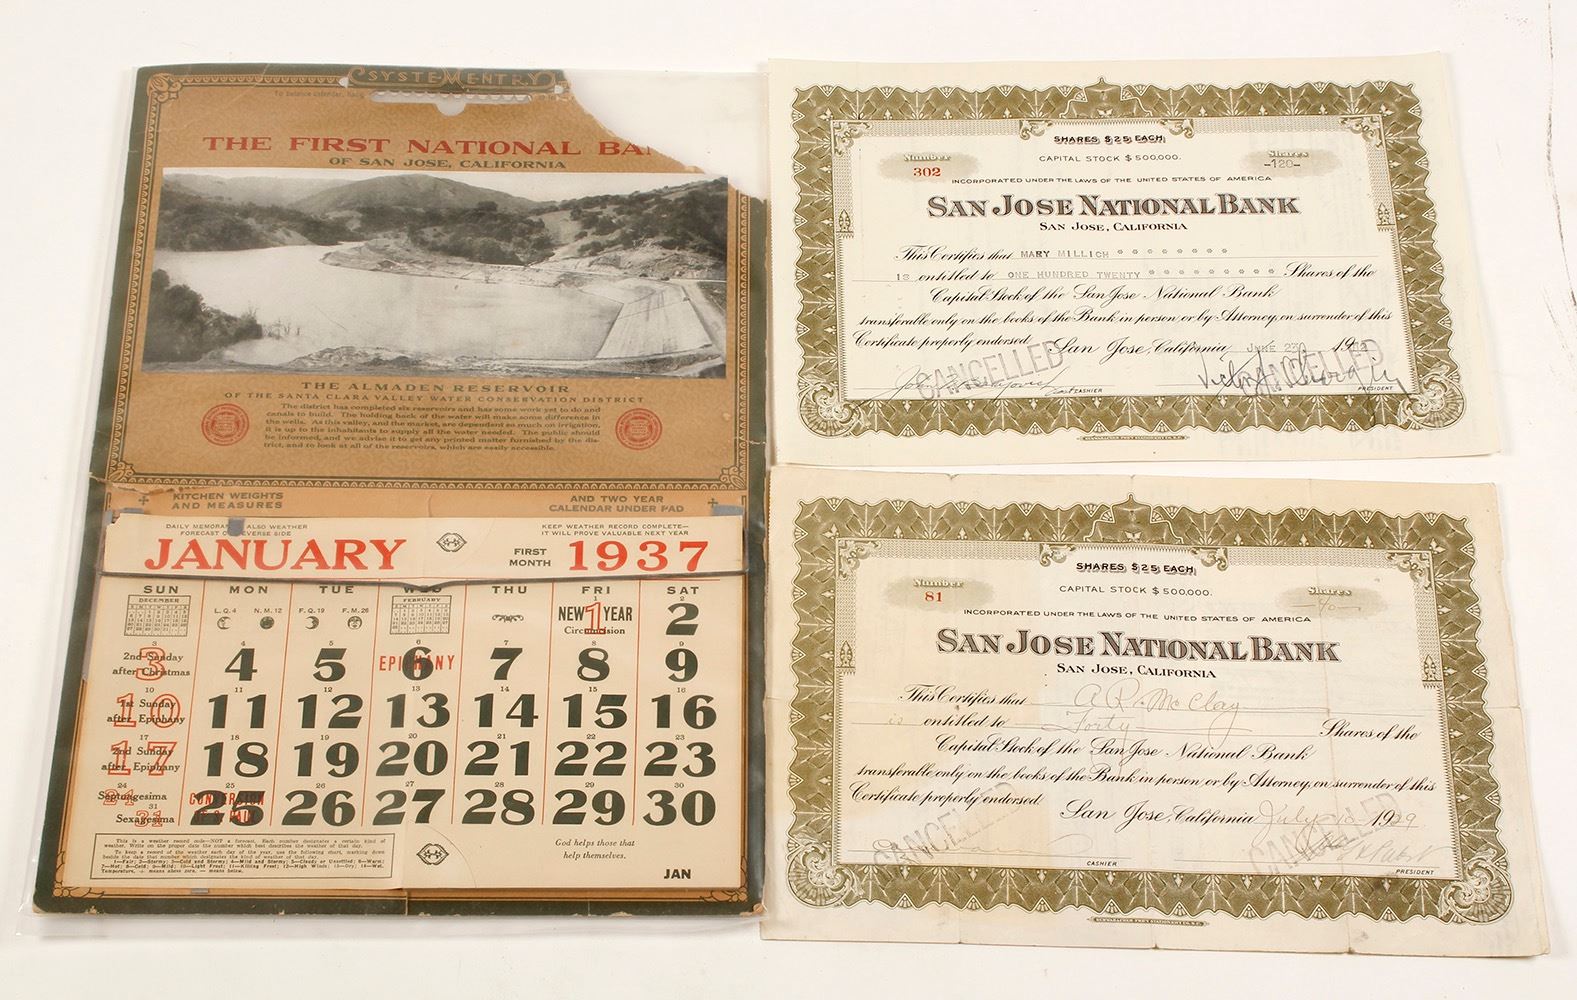 SYSTEMENTRY
To balance calendar, hang
THE FIRST NATIONAL BA
OF SAN JOSE, CALIFORNIA
THE ALMADEN RESERVOIR
OF THE SANTA CLARA VALLEY WATER CONSERVATION DISTRICT
The district has completed six reservoirs and has some work yet to do and
canals to build. The holding back of the water will make some difference in
the wells. As this valley, and the market, are dependent so much on irrigation,
it is up to the inhabitants to supply all the water needed. The public should
be informed, and we advise it to get any printed matter furnished by the dis-
trict, and to look at all of the reservoirs, which are easily accessible.
KITCHEN WEIGHTS
AND MEASURES
AND TWO YEAR
CALENDAR UNDER PAD
DAILY MEMORAN ALSO WEATHER
FORECAST O REVERSE SIDE
KEEP WEATHER RECORD COMPLETE—
IT WILL PROVE VALUABLE NEXT YEAR
JANUARY
FIRST
MONTH
1937
SUN MON TUE WED THU FRI SAT
DECEMBER
L.Q. 4 N.M. 12 F.Q. 19 F.M. 26
FEBRUARY
NEW 1 YEAR
Circumcision
2
3
2nd Sunday
after Christmas
4 5 6 EPIPHANY 7 8 9
10
1st Sunday
after Epiphany
11 12 13 14 15 16
17
2nd Sunday
after Epiphany
18 19 20 21 22 23
24
Septuagesima
31
Sexagesima
25 CONVERSION
26 27 28 29 30
This is a weather record sub—NOT a forecast. Each number designates a certain kind of
weather. Write on the proper date the number which best describes the weather of that day.
To keep a record of the weather each day of the year, use the following chart, marking down
beside the date that number which designates the kind of weather of that day:
God helps those that
help themselves.
JAN
SHARES $25 EACH
Number
302
CAPITAL STOCK $500,000.
Shares
-120-
INCORPORATED UNDER THE LAWS OF THE UNITED STATES OF AMERICA
SAN JOSE NATIONAL BANK
SAN JOSE, CALIFORNIA
This Certifies that MARY MILLICH * * * * * * * *
is entitled to ONE HUNDRED TWENTY * * * * * * * * * Shares of the
Capital Stock of the San Jose National Bank
transferable only on the books of the Bank in person or by Attorney, on surrender of this
Certificate properly endorsed.
San Jose, California JUNE 19
CANCELLED
CANCELLED
CASHIER
PRESIDENT
SHARES $25 EACH
Number
81
CAPITAL STOCK $500,000.
Shares
-40-
INCORPORATED UNDER THE LAWS OF THE UNITED STATES OF AMERICA
SAN JOSE NATIONAL BANK
SAN JOSE, CALIFORNIA
This Certifies that A R. McClay
is entitled to Forty Shares of the
Capital Stock of the San Jose National Bank
transferable only on the books of the Bank in person or by Attorney, on surrender of this
Certificate properly endorsed.
San Jose, California July 1929
CANCELLED
CANCELLED
CASHIER
PRESIDENT